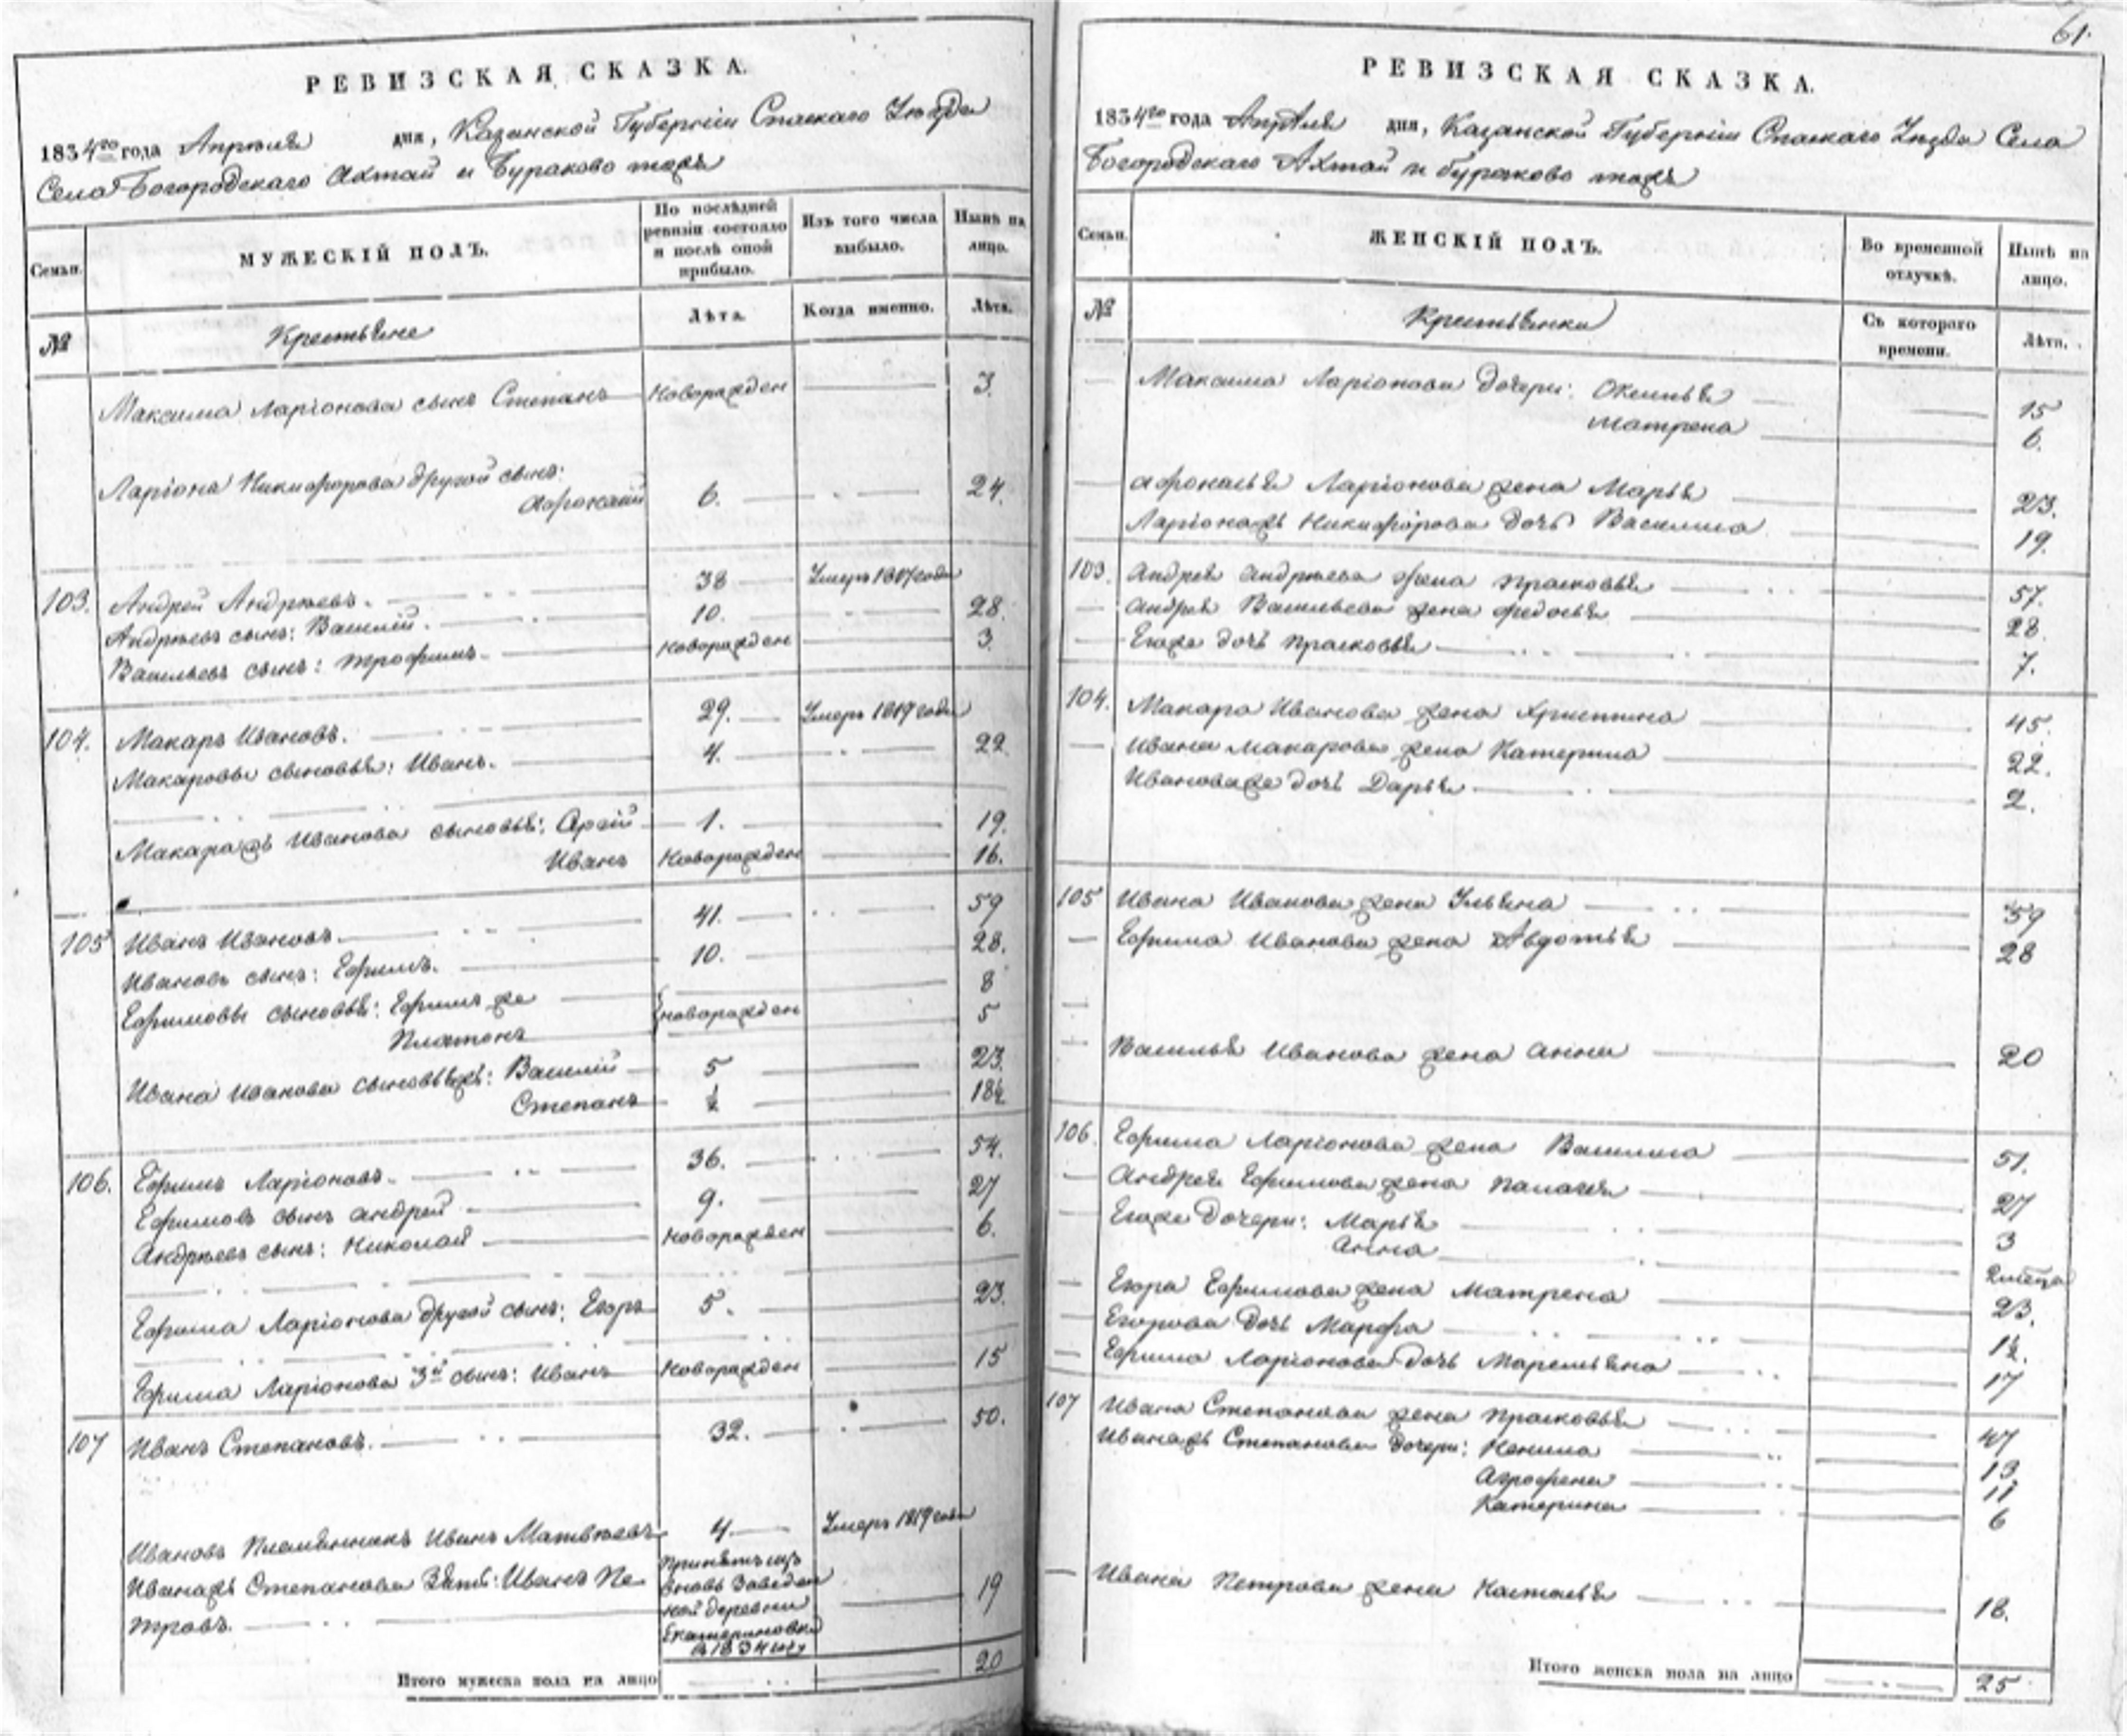 РЕВИЗСКАЯ СКАЗКА.
1834го года Апреля дня, Казанской Губернiи Спаскаго Уезда
Села Богородскаго Ахтай и Бураково тожъ
Семьи. МУЖЕСКIЙ ПОЛЪ. По послѣдней ревизiи состояло и послѣ оной прибыло. Изъ того числа выбыло. Нынѣ на лицо.
№ Крестьяне Лѣта. Когда именно. Лѣта.
Максима Ларiонова сынъ Степанъ Новорожден 3.
Ларiона Никифорова другой сынъ:
Афонасiй 6. 24.
103. Андрей Андрѣевъ. 38 Умеръ года
Андрѣевъ сынъ: Василiй. 10. 28.
Васильевъ сынъ: Трофимъ. Новорожден 3
104. Макаръ Ивановъ. 29. Умеръ 1819 года
Макаровы сыновья: Иванъ. 4. 22.
Макаражъ Иванова сыновья: 1. 19.
Иванъ Новорожден 16.
105 Иванъ Ивановъ. 41. 59
Ивановъ сынъ: Ефимъ. 10. 28.
Ефимовы сыновья: Ефимъ же 8
Платонъ новорожден 5
Ивана Иванова сыновьяжъ: Василiй 5 23.
Степанъ ½ 18½
106. Ефимъ Ларiоновъ. 36. 54.
Ефимовъ сынъ Андрей 9. 27
Андрѣевъ сынъ: Николай Новорожден 6.
Ефима Ларiонова другой сынъ: Егоръ 5. 23.
Ефима Ларiонова 3й сынъ: Иванъ Новорожден 15
107 Иванъ Степановъ. 32. 50.
Ивановъ Племянникъ Иванъ Матвѣевъ 4 Умеръ 1819 года
Иванажъ Степанова Зять: Иванъ Пе
тровъ. Принятъ изъ вновь заведен ной деревни Екатериновки в 1834 году 19
Итого мужеска пола на лицо 20
61.
РЕВИЗСКАЯ СКАЗКА.
1834го года Апреля дня, Казанской Губернiи Спаскаго Уезда Села
Богородскаго Ахтай и Бураково тожъ
Семьи. ЖЕНСКIЙ ПОЛЪ. Во временной отлучкѣ. Нынѣ на лицо.
№ Крестьянки Съ котораго времени. Лѣта.
Максима Ларiонова дочери: Оксинья 15
Матрена 6.
Афонасья Ларiонова жена Марья 23.
Ларiонажъ Никифорова дочь Василиса 19.
103. Андрея Андрѣева жена Прасковья 57.
Андрея Васильева жена Федосья 28.
Егоже дочь Прасковья 7.
104. Макара Иванова жена Христина 45.
Ивана Макарова жена Катерина 22.
Ивановаже дочь Дарья 2.
105 Ивана Иванова жена Ульяна 59
Ефима Иванова жена Авдотья 28
Василья Иванова жена Анна 20
106. Ефима Ларiонова жена Василиса 51.
Андрея Ефимова жена Палагея 27
Егоже дочери: Марья 3
Анна
Егора Ефимова жена Матрена 23.
Егорова дочь Марфа 1½.
Ефима Ларiонова дочь Маремьяна 17
107 Ивана Степанова жена Прасковья 47
Иванажъ Степанова дочери: Ксения 13
Агрофена 11
Катерина 6
Ивана Петрова жена Настасья 18.
Итого женска пола на лицо 25